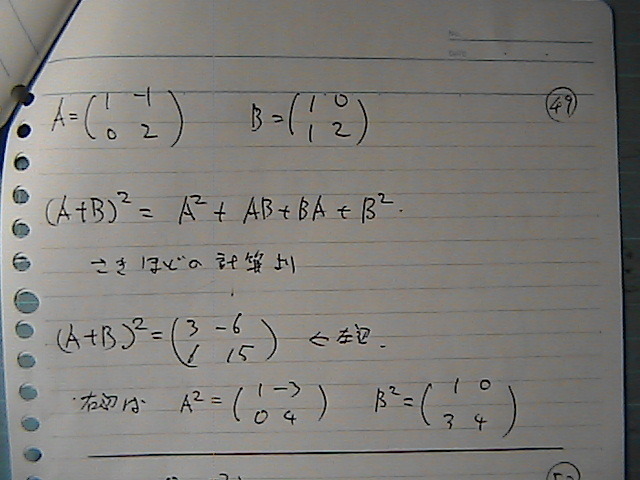 No.
DATE
A=(1 -1 0 2) B=(1 0 1 2) 49
(A+B)²= A²+AB+BA+B².
さきほどの計算より
(A+B)²=(3 -6 1 15) ←左辺.
右辺は A²=(1 -3 0 4) B²=(1 0 3 4)